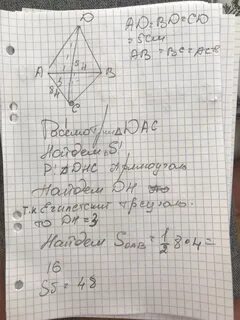 D
AD=BD=CD
=5см
AB = BC = AC=8
A B
5 4
84
C
Рассмотрим △DAC
Найдем S
P: △DHC прямоуголь
Найдем DH
т.к Египетский треуголь.
то DH=3
Найдем SDAB = 1/2 8 · 4 =
16
S5 = 48